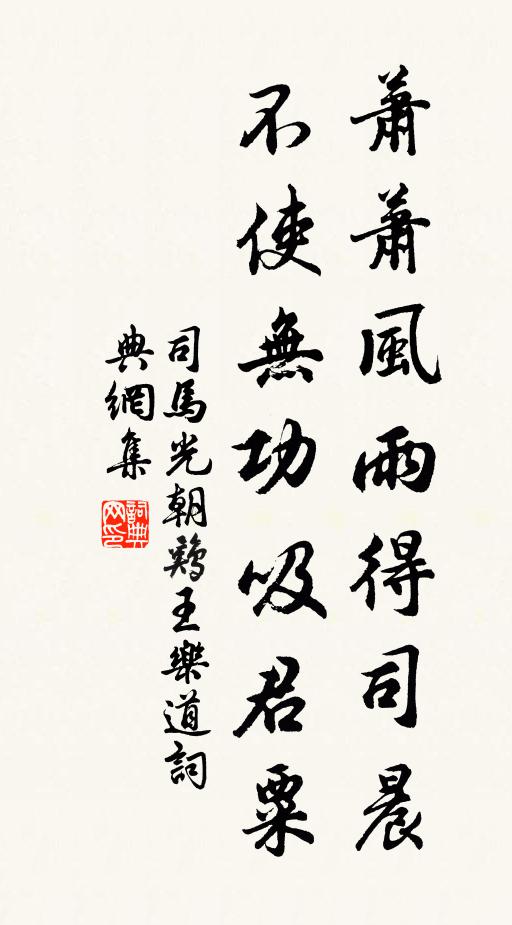 蕭蕭風雨得司晨
不使無功吸君粟
司馬光朝鷄王樂道詞
典網集
詞典网印